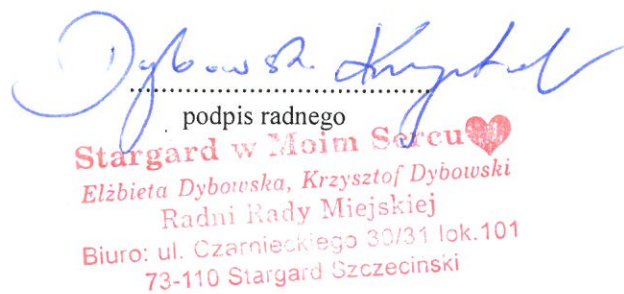 Dybowski Krzysztof
podpis radnego
Stargard w Moim Sercu
Elżbieta Dybowska, Krzysztof Dybowski
Radni Rady Miejskiej
Biuro: ul. Czarnieckiego 30/31 lok.101
73-110 Stargard Szczecinski